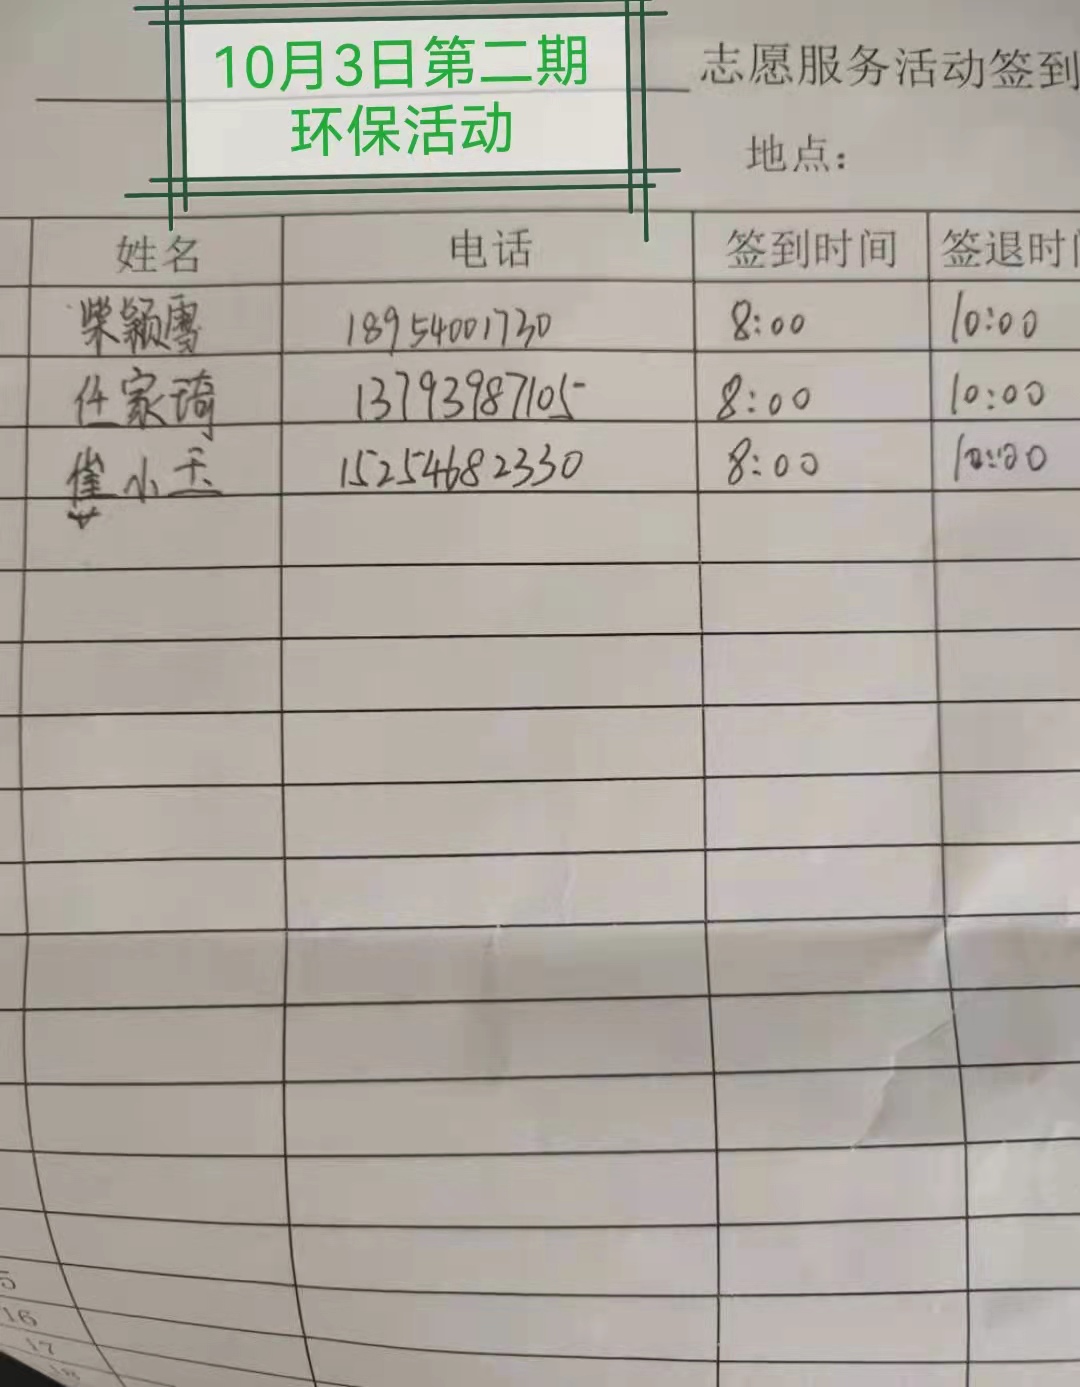 10月3日第二期
环保活动
志愿服务活动签到
地点：
姓名 电话 签到时间 签退时间
柴颖雪 18954001730 8:00 10:00
任家琦 13793987105 8:00 10:00
崔小玉 15254682330 8:00 10:00
5
16
17
18